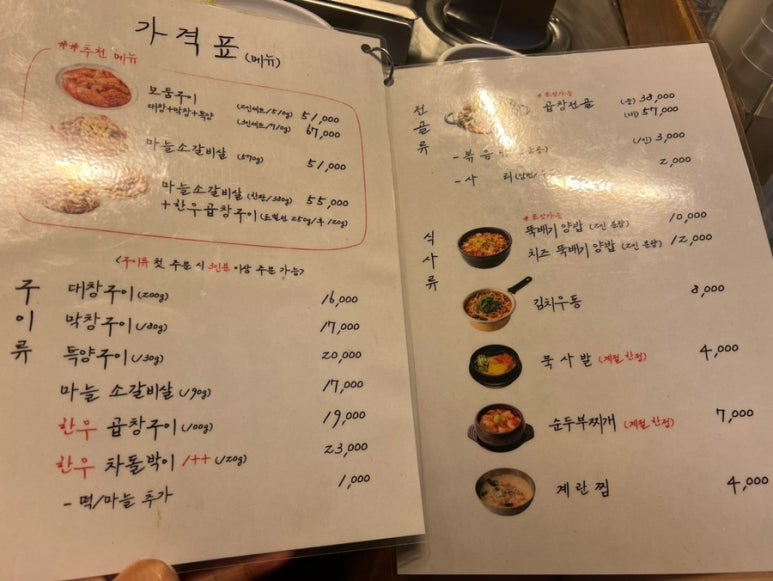 가격표 (메뉴)
** 추천 메뉴
모둠구이
대창+막창+특양
(2인세트/510g) 51,000
(3인세트/710g) 67,000
마늘소갈비살 (570g) 51,000
마늘소갈비살 (한판/380g) 55,000
+한우곱창구이
<구이류 첫 주문 시 3인분 이상 주문 가능>
구이류
대창구이 (200g) 16,000
막창구이 (180g) 17,000
특양구이 (130g) 20,000
마늘 소갈비살 (190g) 17,000
한우 곱창구이 (100g) 19,000
한우 차돌박이 1++ (120g) 23,000
- 떡/마늘 추가 1,000
전골류
* 포장가능
곱창전골 (중) 38,000
(대) 57,000
- 볶음 (1인) 3,000
- 사리 2,000
식사류
* 포장가능
뚝배기 양밥 (2인 분량) 10,000
치즈 뚝배기 양밥 (2인 분량) 12,000
김치우동 8,000
묵사발 (계절 한정) 4,000
순두부찌개 (계절 한정) 7,000
계란찜 4,000